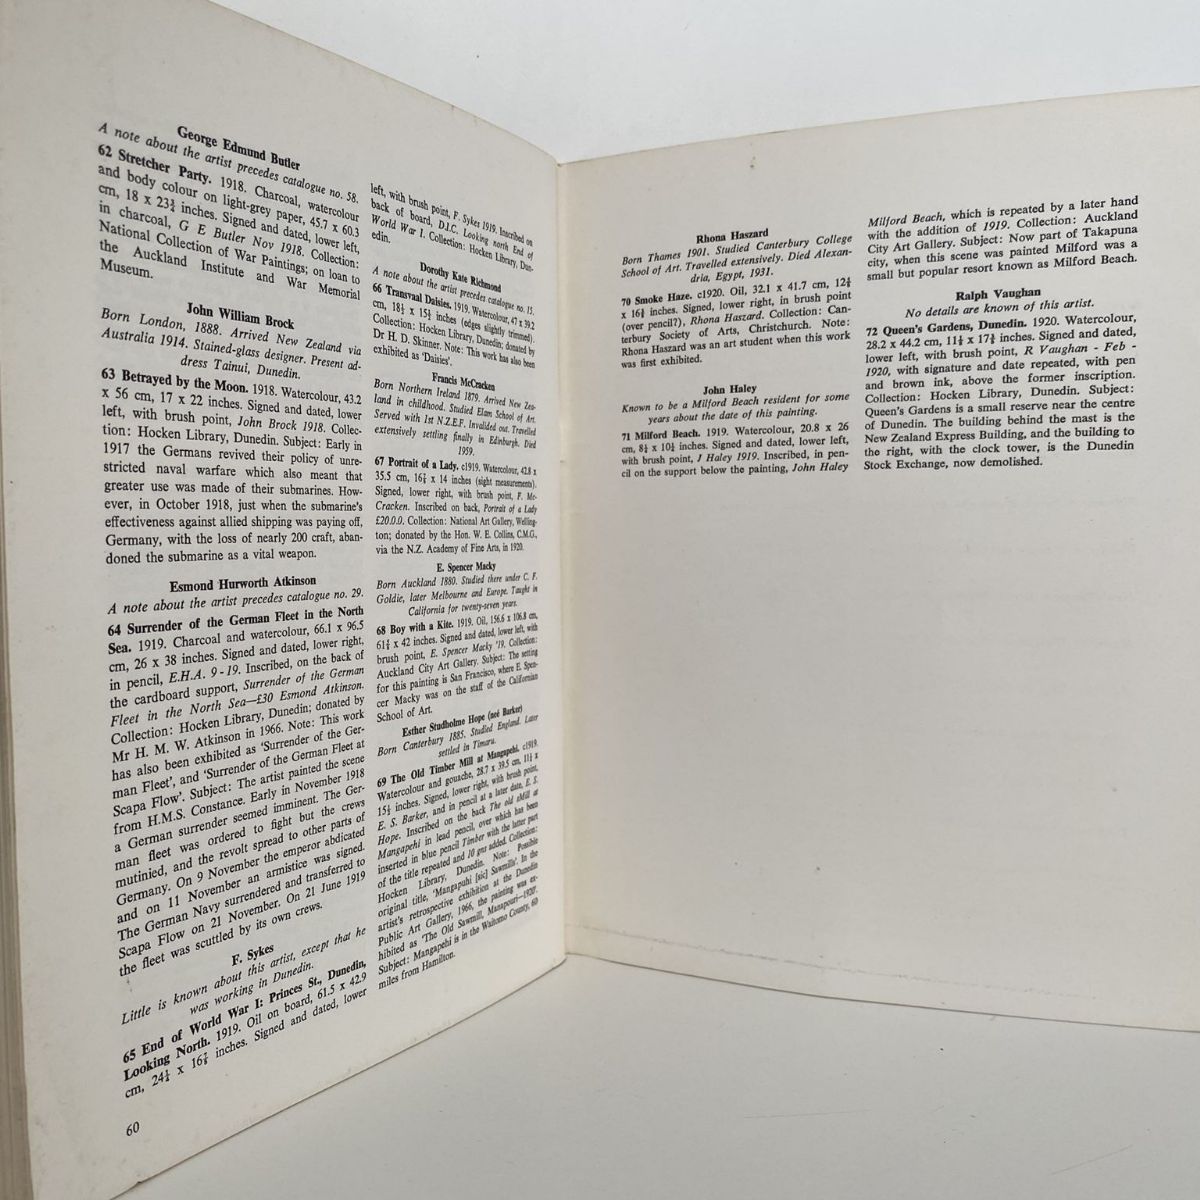 George Edmund Butler
A note about the artist precedes catalogue no. 58.
62 Stretcher Party. 1918. Charcoal, watercolour
and body colour on light-grey paper, 45.7 x 60.3
cm, 18 x 23¾ inches. Signed and dated, lower left,
in charcoal, G E Butler Nov 1918. Collection:
National Collection of War Paintings; on loan to
the Auckland Institute and War Memorial
Museum.
John William Brock
Born London, 1888. Arrived New Zealand via
Australia 1914. Stained-glass designer. Present ad-
dress Tainui, Dunedin.
63 Betrayed by the Moon. 1918. Watercolour, 43.2
x 56 cm, 17 x 22 inches. Signed and dated, lower
left, with brush point, John Brock 1918. Collec-
tion: Hocken Library, Dunedin. Subject: Early in
1917 the Germans revived their policy of unre-
stricted naval warfare which also meant that
greater use was made of their submarines. How-
ever, in October 1918, just when the submarine's
effectiveness against allied shipping was paying off,
Germany, with the loss of nearly 200 craft, aban-
doned the submarine as a vital weapon.
Esmond Hurworth Atkinson
A note about the artist precedes catalogue no. 29.
64 Surrender of the German Fleet in the North
Sea. 1919. Charcoal and watercolour, 66.1 x 96.5
cm, 26 x 38 inches. Signed and dated, lower right,
in pencil, E.H.A. 9-19. Inscribed, on the back of
the cardboard support, Surrender of the German
Fleet in the North Sea—£30 Esmond Atkinson.
Collection: Hocken Library, Dunedin; donated by
Mr H. M. W. Atkinson in 1966. Note: This work
has also been exhibited as 'Surrender of the Ger-
man Fleet', and 'Surrender of the German Fleet at
Scapa Flow'. Subject: The artist painted the scene
from H.M.S. Constance. Early in November 1918
a German surrender seemed imminent. The Ger-
man fleet was ordered to fight but the crews
mutinied, and the revolt spread to other parts of
Germany. On 9 November the emperor abdicated
and on 11 November an armistice was signed.
The German Navy surrendered and transferred to
Scapa Flow on 21 November. On 21 June 1919
the fleet was scuttled by its own crews.
F. Sykes
Little is known about this artist, except that he
was working in Dunedin.
65 End of World War I: Princes St., Dunedin,
Looking North. 1919. Oil on board, 61.5 x 42.9
cm, 24¼ x 16⅞ inches. Signed and dated, lower
60
left, with brush point, F. Sykes 1919. Inscribed on
back of board, D.I.C. Looking north End of
World War I. Collection: Hocken Library, Dun-
edin.
Dorothy Kate Richmond
A note about the artist precedes catalogue no. 15.
66 Transvaal Daisies. 1919. Watercolour, 47 x 39.2
cm, 18½ x 15½ inches (edges slightly trimmed).
Collection: Hocken Library, Dunedin; donated by
Dr H. D. Skinner. Note: This work has also been
exhibited as 'Daisies'.
Francis McCracken
Born Northern Ireland 1879. Arrived New Zea-
land in childhood. Studied Elam School of Art.
Served with 1st N.Z.E.F. Invalided out. Travelled
extensively settling finally in Edinburgh. Died
1959.
67 Portrait of a Lady. c1919. Watercolour, 42.8 x
35.5 cm, 16⅞ x 14 inches (sight measurements).
Signed, lower right, with brush point, F. Mc-
Cracken. Inscribed on back, Portrait of a Lady
£20.0.0. Collection: National Art Gallery, Welling-
ton; donated by the Hon. W. E. Collins, C.M.G.,
via the N.Z. Academy of Fine Arts, in 1920.
E. Spencer Macky
Born Auckland 1880. Studied there under C. F.
Goldie, later Melbourne and Europe. Taught in
California for twenty-seven years.
68 Boy with a Kite. 1919. Oil, 156.6 x 106.8 cm,
x 42 inches. Signed and dated, lower left, with
brush point, E. Spencer Macky '19. Collection:
Auckland City Art Gallery. Subject: The setting
for this painting is San Francisco, where E. Spen-
cer Macky was on the staff of the Californian
School of Art.
Esther Studholme Hope (neé Barker)
Born Canterbury 1885. Studied England. Later
settled in Timaru.
69 The Old Timber Mill at Mangapehi. c1919.
Watercolour and gouache, 28.7 x 39.5 cm, x
inches. Signed, lower right, with brush point,
E. S. Barker, and in pencil at a later date, E. S.
Hope. Inscribed on the back The old Mill at
Mangapehi in lead pencil, over which has been
inserted in blue pencil Timber with the latter part
of the title repeated and 10 gns added. Collection:
Hocken Library, Dunedin. Note: Possible
original title, 'Mangapuhi [sic] Sawmills'. In the
artist's retrospective exhibition at the Dunedin
Public Art Gallery, 1966, the painting was ex-
hibited as 'The Old Sawmill, Manapouri—1920'.
Subject: Mangapehi is in the Waitomo County, 60
miles from Hamilton.
Rhona Haszard
Born Thames 1901. Studied Canterbury College
School of Art. Travelled extensively. Died Alexan-
dria, Egypt, 1931.
70 Smoke Haze. c1920. Oil, 32.1 x 41.7 cm, 12⅝
x 16⅜ inches. Signed, lower right, in brush point
(over pencil?), Rhona Haszard. Collection: Can-
terbury Society of Arts, Christchurch. Note:
Rhona Haszard was an art student when this work
was first exhibited.
John Haley
Known to be a Milford Beach resident for some
years about the date of this painting.
71 Milford Beach. 1919. Watercolour, 20.8 x 26
cm, x inches. Signed and dated, lower left,
with brush point, J Haley 1919. Inscribed, in pen-
cil on the support below the painting, John Haley
Milford Beach, which is repeated by a later hand
with the addition of 1919. Collection: Auckland
City Art Gallery. Subject: Now part of Takapuna
city, when this scene was painted Milford was a
small but popular resort known as Milford Beach.
Ralph Vaughan
No details are known of this artist.
72 Queen's Gardens, Dunedin. 1920. Watercolour,
28.2 x 44.2 cm, x inches. Signed and dated,
lower left, with brush point, R Vaughan - Feb -
1920, with signature and date repeated, with pen
and brown ink, above the former inscription.
Collection: Hocken Library, Dunedin. Subject:
Queen's Gardens is a small reserve near the centre
of Dunedin. The building behind the mast is the
New Zealand Express Building, and the building to
the right, with the clock tower, is the Dunedin
Stock Exchange, now demolished.